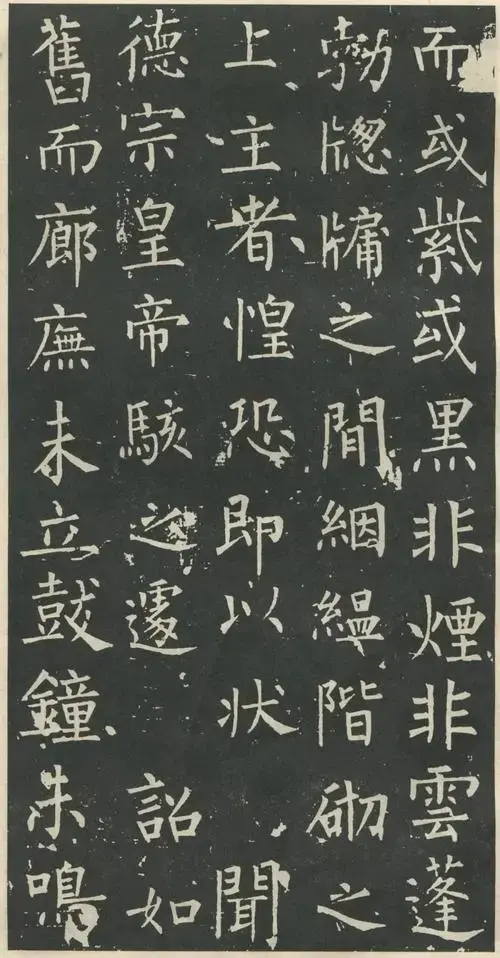 而或紫或黑非煙非雲蓬
勃牕牗之間絪縕階砌之
上主者惶恐即以状聞
德宗皇帝駭之遽詔如
舊而廊廡未立鼔鐘未鳴